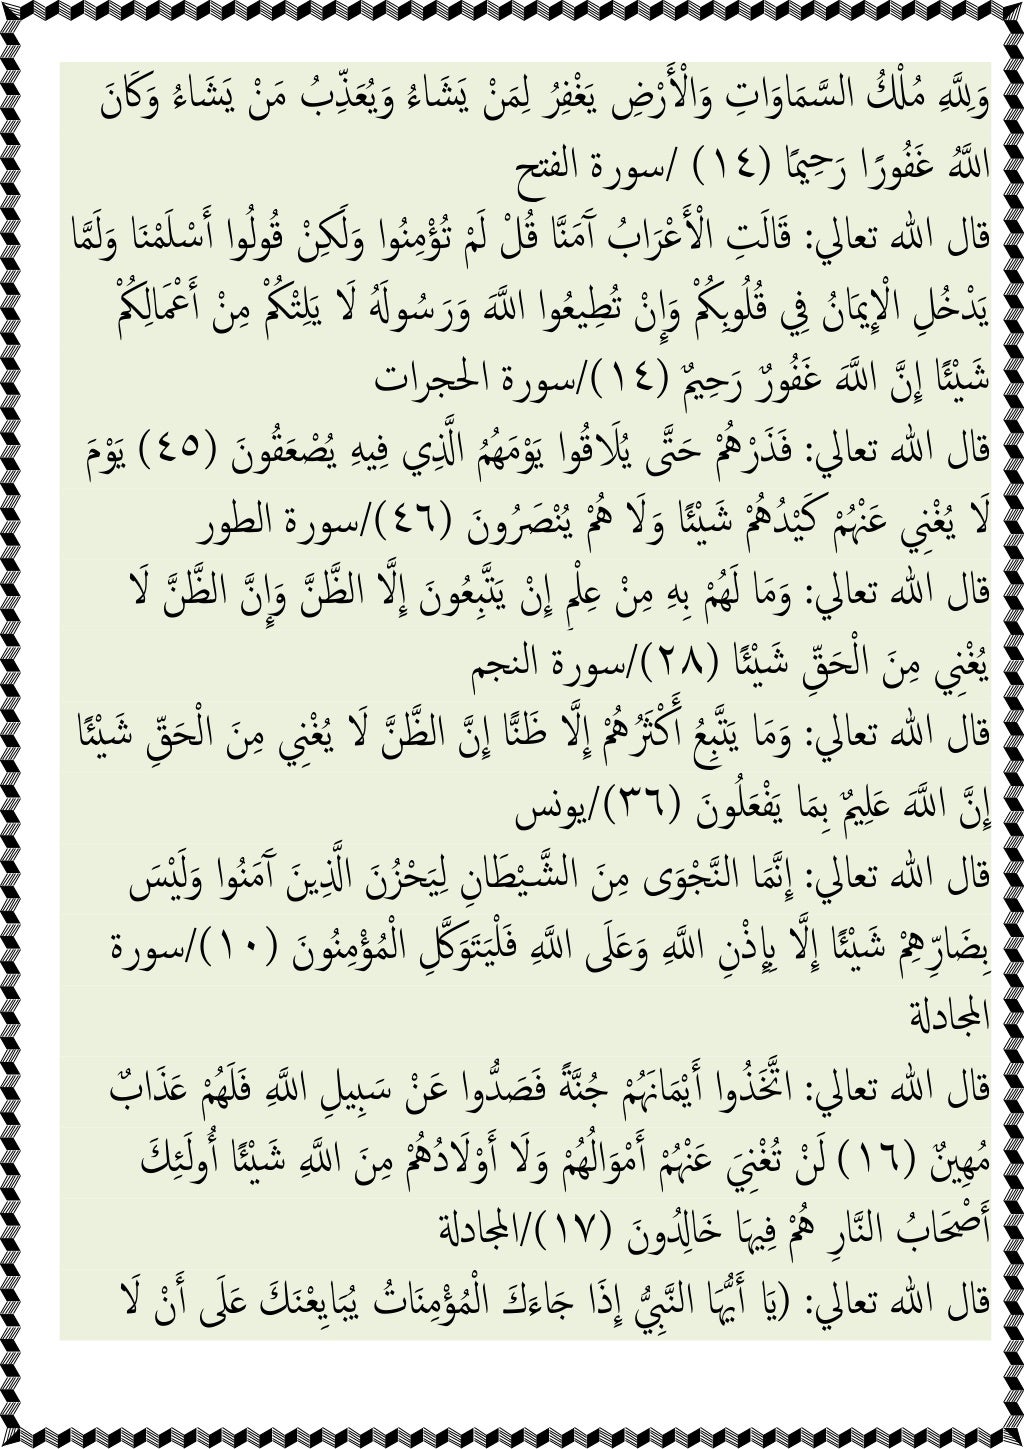 وَلِلَّهِ مُلْكُ السَّمَاوَاتِ وَالْأَرْضِ يَغْفِرُ لِمَنْ يَشَاءُ وَيُعَذِّبُ مَنْ يَشَاءُ وَكَانَ
اللَّهُ غَفُورًا رَحِيمًا (١٤) /سورة الفتح
قال الله تعالي: قَالَتِ الْأَعْرَابُ آَمَنَّا قُلْ لَمْ تُؤْمِنُوا وَلَكِنْ قُولُوا أَسْلَمْنَا وَلَمَّا
يَدْخُلِ الْإِيمَانُ فِي قُلُوبِكُمْ وَإِنْ تُطِيعُوا اللَّهَ وَرَسُولَهُ لَا يَلِتْكُمْ مِنْ أَعْمَالِكُمْ
شَيْئًا إِنَّ اللَّهَ غَفُورٌ رَحِيمٌ (١٤)/سورة الحجرات
قال الله تعالي: فَذَرْهُمْ حَتَّى يُلَاقُوا يَوْمَهُمُ الَّذِي فِيهِ يُصْعَقُونَ (٤٥) يَوْمَ
لَا يُغْنِي عَنْهُمْ كَيْدُهُمْ شَيْئًا وَلَا هُمْ يُنْصَرُونَ (٤٦)/سورة الطور
قال الله تعالي: وَمَا لَهُمْ بِهِ مِنْ عِلْمٍ إِنْ يَتَّبِعُونَ إِلَّا الظَّنَّ وَإِنَّ الظَّنَّ لَا
يُغْنِي مِنَ الْحَقِّ شَيْئًا (٢٨)/سورة النجم
قال الله تعالي: وَمَا يَتَّبِعُ أَكْثَرُهُمْ إِلَّا ظَنًّا إِنَّ الظَّنَّ لَا يُغْنِي مِنَ الْحَقِّ شَيْئًا
إِنَّ اللَّهَ عَلِيمٌ بِمَا يَفْعَلُونَ (٣٦)/يونس
قال الله تعالي: إِنَّمَا النَّجْوَى مِنَ الشَّيْطَانِ لِيَحْزُنَ الَّذِينَ آَمَنُوا وَلَيْسَ
بِضَارِّهِمْ شَيْئًا إِلَّا بِإِذْنِ اللَّهِ وَعَلَى اللَّهِ فَلْيَتَوَكَّلِ الْمُؤْمِنُونَ (١٠)/سورة
المجادلة
قال الله تعالي: اتَّخَذُوا أَيْمَانَهُمْ جُنَّةً فَصَدُّوا عَنْ سَبِيلِ اللَّهِ فَلَهُمْ عَذَابٌ
مُهِينٌ (١٦) لَنْ تُغْنِيَ عَنْهُمْ أَمْوَالُهُمْ وَلَا أَوْلَادُهُمْ مِنَ اللَّهِ شَيْئًا أُولَئِكَ
أَصْحَابُ النَّارِ هُمْ فِيهَا خَالِدُونَ (١٧)/المجادلة
قال الله تعالي: (يَا أَيُّهَا النَّبِيُّ إِذَا جَاءَكَ الْمُؤْمِنَاتُ يُبَايِعْنَكَ عَلَى أَنْ لَا